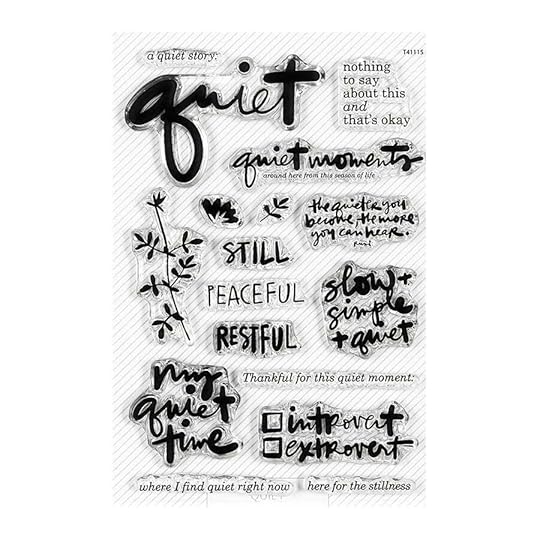 T41115
a quiet story:
quiet
nothing
to say
about this
and
that's okay
quiet moments
around here from this season of life
the quieter you
become, the more
you can hear.
STILL
PEACEFUL
RESTFUL
slow +
simple
+ quiet
my
quiet
time
Thankful for this quiet moment:
introvert
extrovert
where I find quiet right now
here for the stillness
QUIET